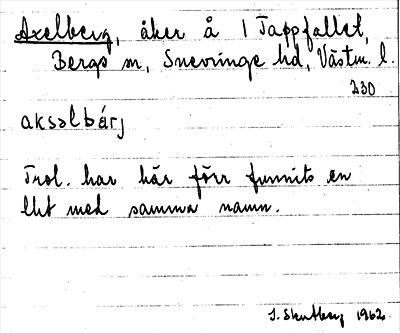 Axelberg, åker å 1 Tappfallet,
Bergs sn, Snevringe hd, Västm. l.
230
aksəlbárj
Trol. har här förr funnits en
lht med samma namn.
J. Skutberg 1962